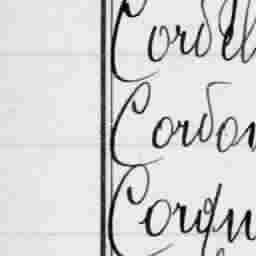 Cordel
Cordon
Corqu